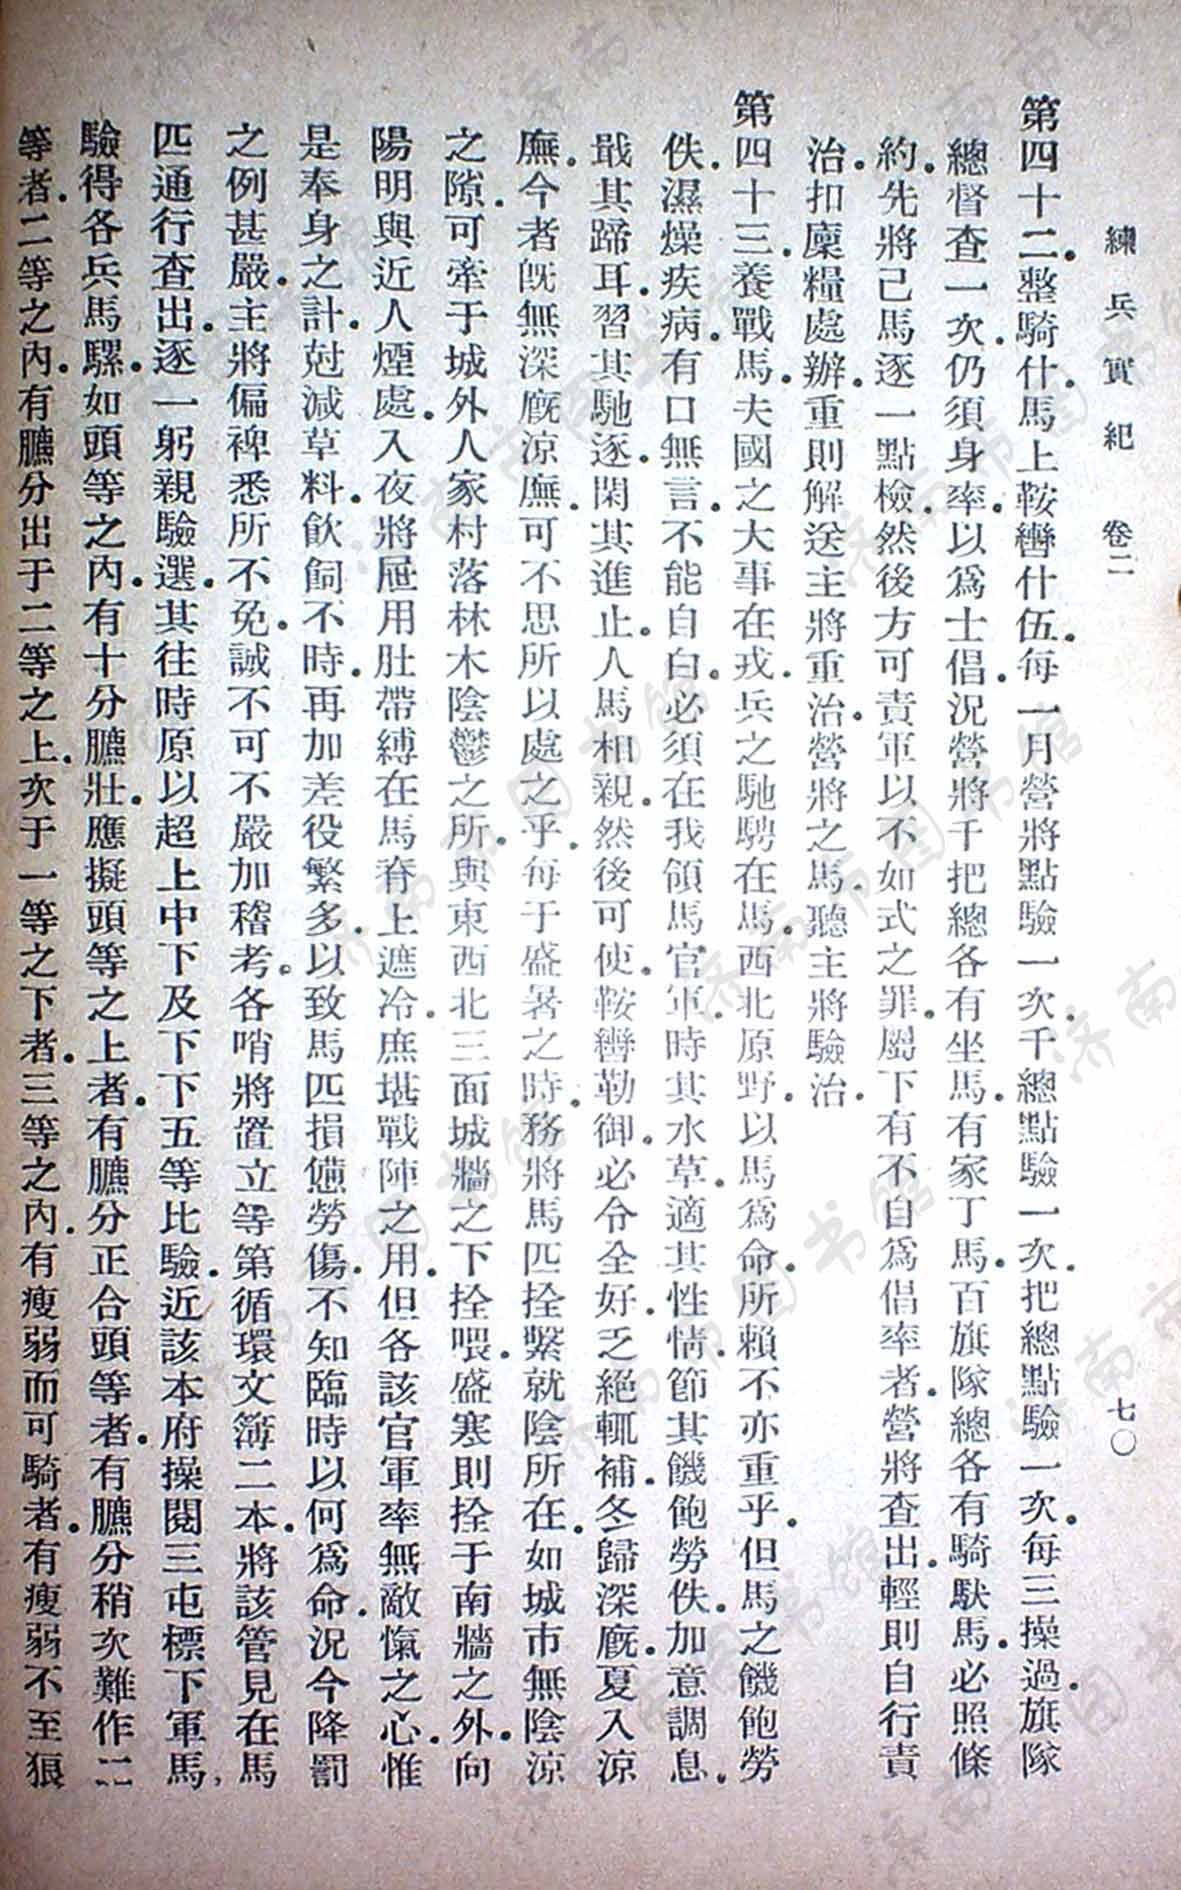 練兵實紀 卷二 七〇
第四十二.整騎什.馬上鞍轡什伍.每一月營將點驗一次.千總點驗一次.把總點驗一次.每三操過.旗隊
總督查一次.仍須身率.以爲士倡.況營將千把總各有坐馬.有家丁馬.百旗隊總各有騎馱馬.必照條
約.先將己馬逐一點檢.然後方可責軍以不如式之罪.屬下有不自爲倡率者.營將查出.輕則自行責
治.扣廩糧處辦.重則解送主將重治.營將之馬.聽主將驗治.
第四十三.養戰馬.夫國之大事在戎.兵之馳騁在馬.西北原野.以馬爲命.所賴不亦重乎.但馬之饑飽勞
佚.濕燥疾病.有口無言.不能自白.必須在我領馬官軍.時其水草.適其性情.節其饑飽勞佚.加意調息.
戢其蹄耳.習其馳逐.閑其進止.人馬相親.然後可使.鞍轡勒御.必令全好.乏絕輒補.冬歸深廐.夏入涼
廡.今者旣無深廐涼廡.可不思所以處之乎.每于盛暑之時.務將馬匹拴繫就陰所在.如城市無陰涼
之隙.可牽于城外人家村落林木陰鬱之所.與東西北三面城牆之下拴喂.盛寒則拴于南牆之外.向
陽明與近人煙處.入夜將屜用肚帶縛在馬脊上遮冷.庶堪戰陣之用.但各該官軍率無敵愾之心.惟
是奉身之計.尅減草料.飮飼不時.再加差役繁多.以致馬匹損憊勞傷.不知臨時以何爲命.況今降罰
之例甚嚴.主將偏裨悉所不免.誠不可不嚴加稽考.各哨將置立等第循環文簿二本.將該管見在馬
匹通行查出.逐一躬親驗選.其往時原以超上中下及下下五等比驗.近該本府操閱三屯標下軍馬,
驗得各兵馬騾.如頭等之內.有十分臕壯.應擬頭等之上者.有臕分正合頭等者.有臕分稍次難作二
等者.二等之內.有臕分出于二等之上.次于一等之下者.三等之內.有瘦弱而可騎者.有瘦弱不至狼